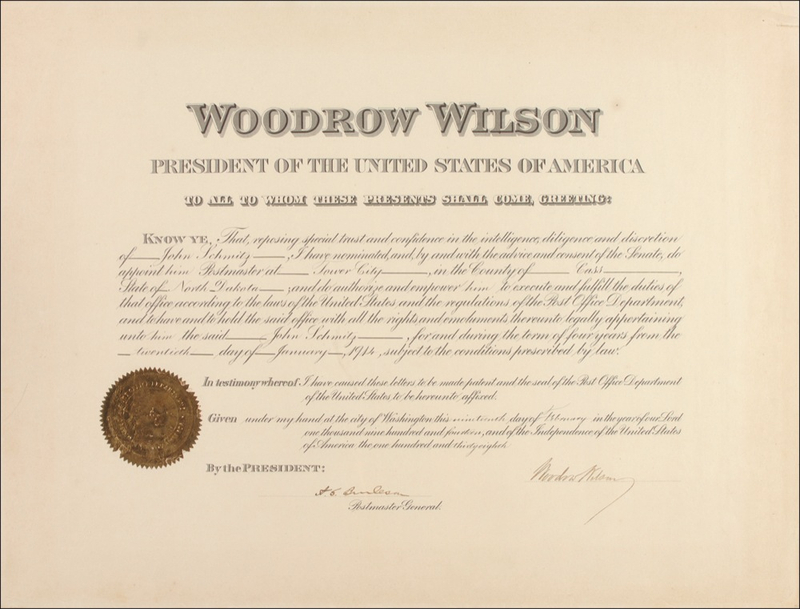 WOODROW WILSON
PRESIDENT OF THE UNITED STATES OF AMERICA
TO ALL TO WHOM THESE PRESENTS SHALL COME, GREETING:
KNOW YE, That, reposing special trust and confidence in the intelligence, diligence and discretion
of John Schmitz, I have nominated, and, by and with the advice and consent of the Senate, do
appoint him Postmaster at Tower City, in the County of Cass,
State of North Dakota; and do authorize and empower him to execute and fulfill the duties of
that office according to the laws of the United States and the regulations of the Post Office Department,
and to have and to hold the said office with all the rights and emoluments thereunto legally appertaining
unto him the said John Schmitz, for and during the term of four years from the
twentieth day of January, 1914, subject to the conditions prescribed by law.
In testimony whereof I have caused these letters to be made patent and the seal of the Post Office Department
of the United States to be hereunto affixed.
Given under my hand at the city of Washington this nineteenth day of February in the year of our Lord
one thousand nine hundred and fourteen, and of the Independence of the United States
of America the one hundred and thirty eighth
By the PRESIDENT:
Woodrow Wilson
A S Burleson
Postmaster General.